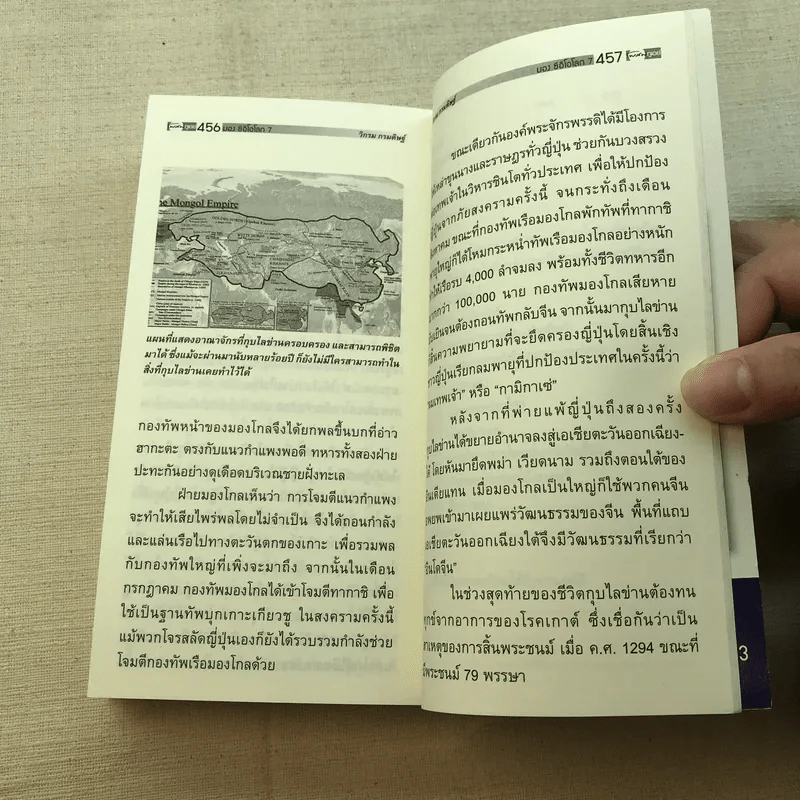 456 มอง ซีอีโอโลก 7
วิกรม กรมดิษฐ์
he Mongol Empire
แผนที่แสดงอาณาจักรที่กุบไลข่านครอบครอง และสามารถพิชิต
มาได้ ซึ่งแม้จะผ่านมานับหลายร้อยปี ก็ยังไม่มีใครสามารถทำใน
สิ่งที่กุบไลข่านเคยทำไว้ได้
กองทัพหน้าของมองโกลจึงได้ยกพลขึ้นบกที่อ่าว
ฮากะตะ ตรงกับแนวกำแพงพอดี ทหารทั้งสองฝ่าย
ปะทะกันอย่างดุเดือดบริเวณชายฝั่งทะเล
ฝ่ายมองโกลเห็นว่า การโจมตีแนวกำแพง
จะทำให้เสียไพร่พลโดยไม่จำเป็น จึงได้ถอนกำลัง
และแล่นเรือไปทางตะวันตกของเกาะ เพื่อรวมพล
กับกองทัพใหญ่ที่เพิ่งจะมาถึง จากนั้นในเดือน
กรกฎาคม กองทัพมองโกลได้เข้าโจมตีทากาชิ เพื่อ
ใช้เป็นฐานทัพบุกเกาะเกียวชู ในสงครามครั้งนี้
แม้พวกโจรสลัดญี่ปุ่นเองก็ยังได้รวบรวมกำลังช่วย
โจมตีกองทัพเรือมองโกลด้วย
มอง ซีอีโอโลก 7 457
ขณะเดียวกันองค์พระจักรพรรดิได้มีโองการ
เหล่าขุนนางและราษฎรทั่วญี่ปุ่น ช่วยกันบวงสรวง
เทพเจ้าในวิหารชินโตทั่วประเทศ เพื่อให้ปกป้อง
ญี่ปุ่นจากภัยสงครามครั้งนี้ จนกระทั่งถึงเดือน
ขณะที่กองทัพเรือมองโกลพักทัพที่ทากาชิ
พายุใหญ่ก็ได้โหมกระหน่ำทัพเรือมองโกลอย่างหนัก
ให้เรือรบ 4,000 ลำจมลง พร้อมทั้งชีวิตทหารอีก
มากกว่า 100,000 นาย กองทัพมองโกลเสียหาย
จนต้องถอนทัพกลับจีน จากนั้นมากุบไลข่าน
ความพยายามที่จะยึดครองญี่ปุ่นโดยสิ้นเชิง
ชาวญี่ปุ่นเรียกลมพายุที่ปกป้องประเทศในครั้งนี้ว่า
เทพเจ้า” หรือ “กามิกาเซ่”
หลังจากที่พ่ายแพ้ญี่ปุ่นถึงสองครั้ง
กุบไลข่านได้ขยายอำนาจลงสู่เอเชียตะวันออกเฉียง-
ใต้ โดยหันมายึดพม่า เวียดนาม รวมถึงตอนใต้ของ
เมื่อมองโกลเป็นใหญ่ก็ใช้พวกคนจีน
อพยพเข้ามาเผยแพร่วัฒนธรรมของจีน พื้นที่แถบ
เอเชียตะวันออกเฉียงใต้จึงมีวัฒนธรรมที่เรียกว่า
อินโดจีน”
ในช่วงสุดท้ายของชีวิตกุบไลข่านต้องทน
ทุกข์จากอาการของโรคเกาต์ ซึ่งเชื่อกันว่าเป็น
สาเหตุของการสิ้นพระชนม์ เมื่อ ค.ศ. 1294 ขณะที่
มีพระชนม์ 79 พรรษา
3